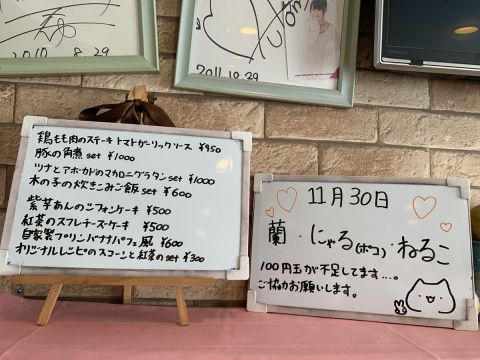 2010.8.29
2011.10.29
鶏もも肉のステーキ トマトガーリックソース ¥950
豚の角煮set ¥1000
ツナとアボカドのマカロニグラタンset ¥1000
木の子の炊きこみご飯set ¥600
紫芋あんのシフォンケーキ ¥500
紅茶のスフレチーズケーキ ¥500
自家製プリンバナナパフェ風 ¥600
オリジナルレシピのスコーンと紅茶のset ¥300
11月30日
蘭・にゃる(ポコ)・ねるこ
100円玉が不足してます…。
ご協力お願いします。